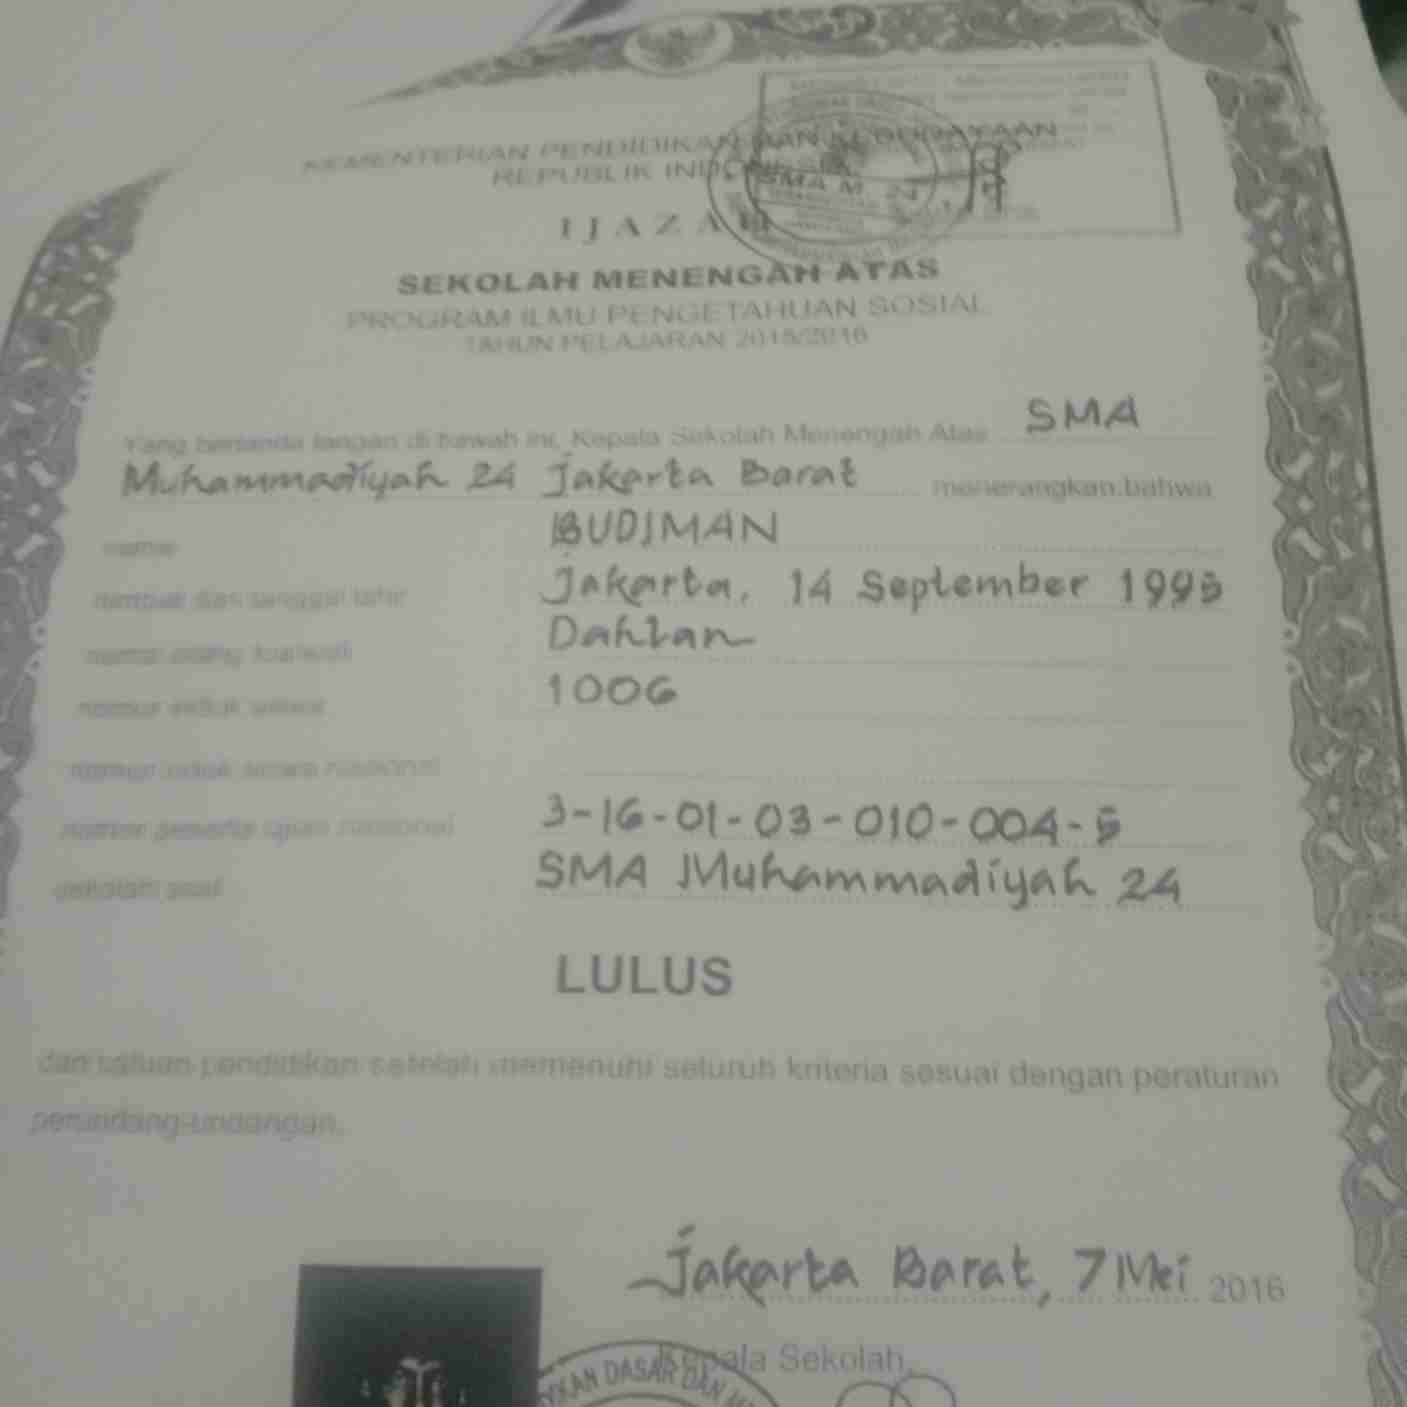 KEMENTERIAN PENDIDIKAN DAN KEBUDAYAAN
REPUBLIK INDONESIA
IJAZAH
SMA M. 24
SEKOLAH MENENGAH ATAS
PROGRAM ILMU PENGETAHUAN SOSIAL
TAHUN PELAJARAN 2015/2016
Yang bertanda tangan di bawah ini, Kepala Sekolah Menengah Atas SMA
Muhammadiyah 24 Jakarta Barat menerangkan bahwa
nama BUDIMAN
tempat dan tanggal lahir Jakarta, 14 September 1995
nama orang tua/wali Dahlan
nomor induk siswa 1006
nomor induk siswa nasional
nomor peserta ujian nasional 3-16-01-03-010-004-5
sekolah asal SMA Muhammadiyah 24
LULUS
dari satuan pendidikan setelah memenuhi seluruh kriteria sesuai dengan peraturan
perundang-undangan.
Jakarta Barat, 7 Mei 2016
Kepala Sekolah,
DASAR DAN